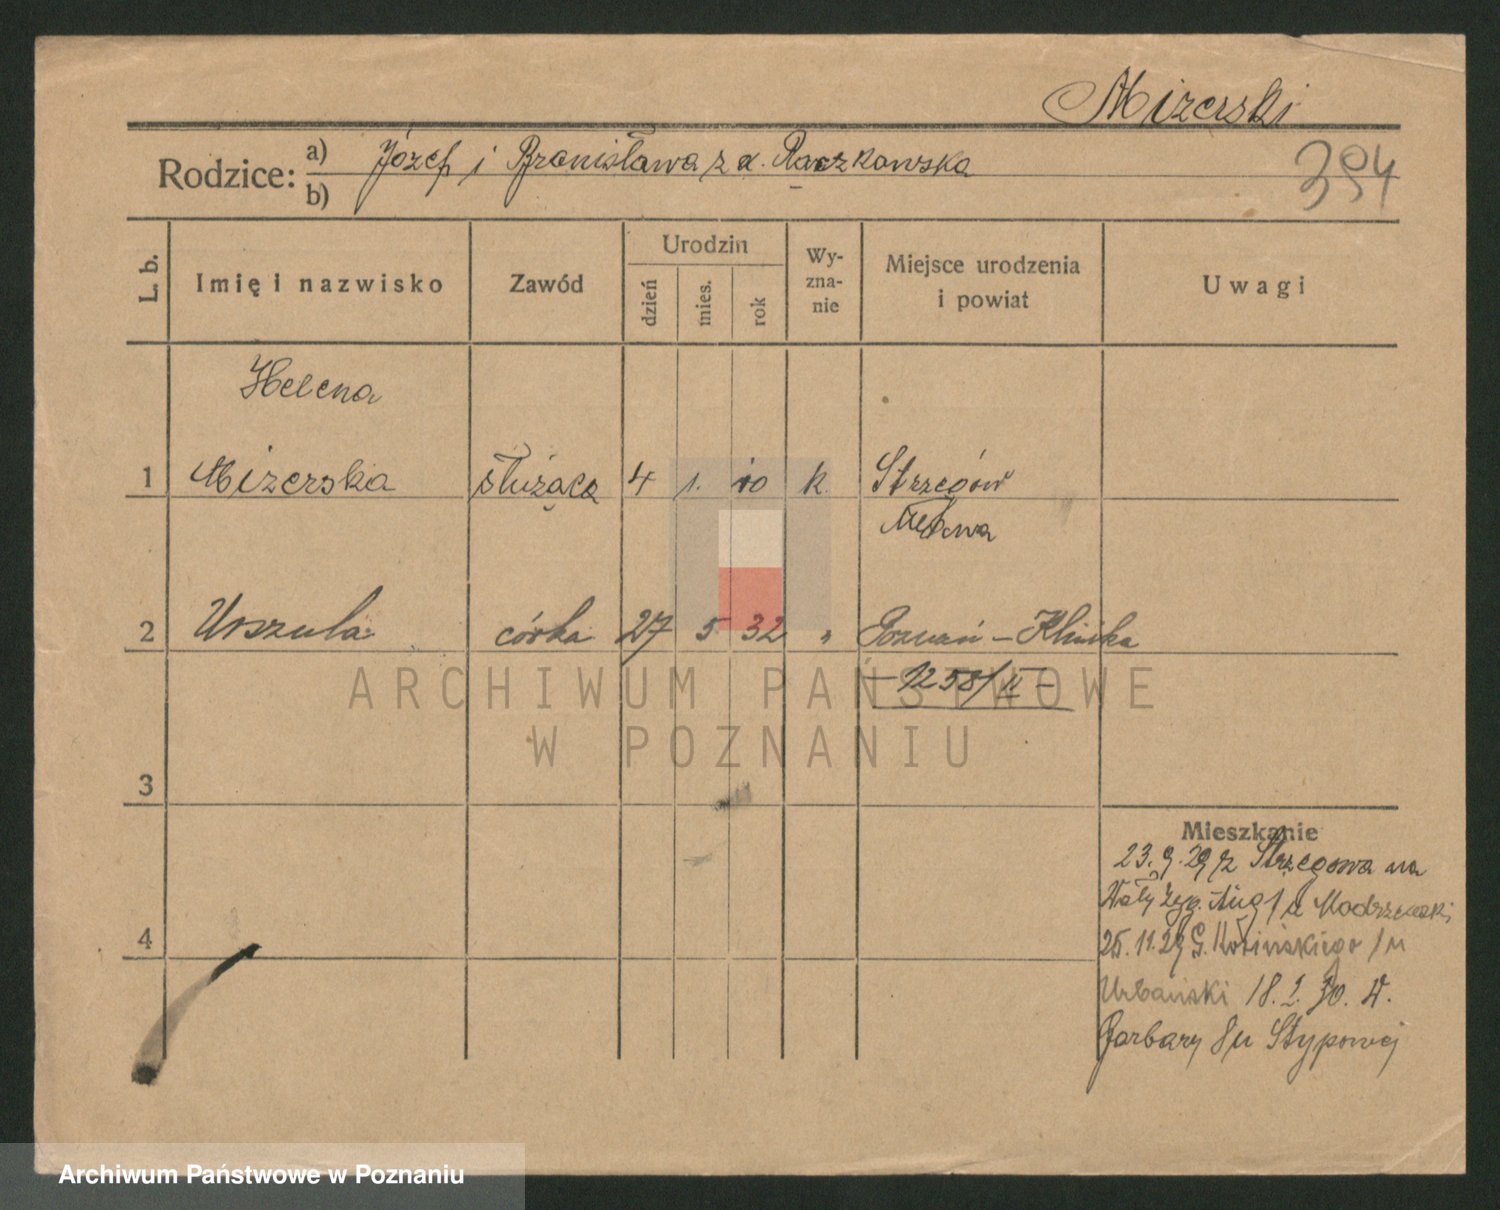 Mizerski
Rodzice: a) Józef i Bronisława z d. Raczkowska
b)
394
L. b. Imię i nazwisko Zawód Urodzin dzień mies. rok Wy-zna-nie Miejsce urodzenia i powiat Uwagi
Helena
1 Mizerska służąca 4 1. 10 k. Strzegów
2 Urszula córka 27 5 32 " Poznań – Klinika
– 1258/II –
ARCHIWUM PAŃSTWOWE
W POZNANIU
3
Mieszkanie
23.9.29 z Strzegowa na
Wały Zyg. Aug 1 a Modrzewski
4
25.11.29 G. /u
Urbański 18. 30. W.
Garbary 8 u Stypowej
Archiwum Państwowe w Poznaniu